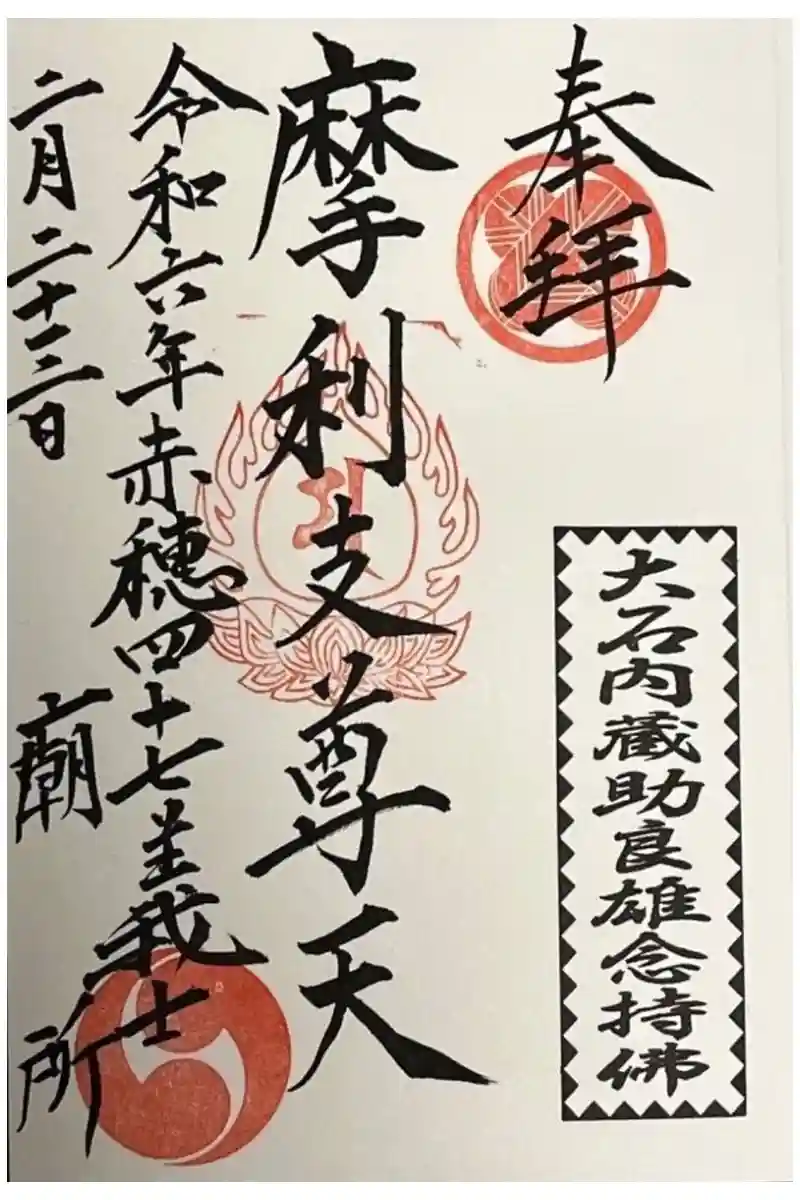 奉拝
大石内蔵助良雄念持佛
摩利支尊天
令和六年赤穂四十七義士
二月二十三日 廟所